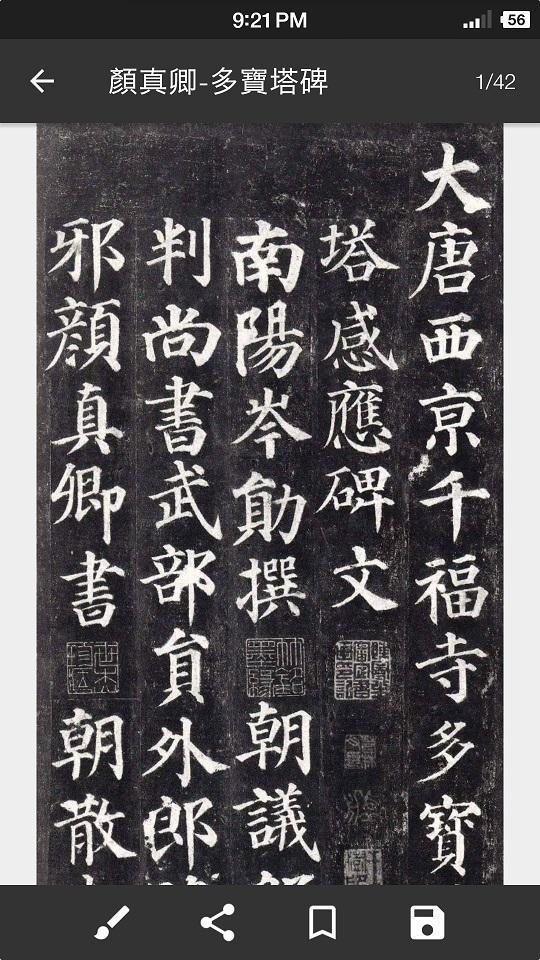 9:21 PM
56
顏真卿-多寶塔碑
1/42
大唐西京千福寺多寶
塔感應碑文
南陽岑勛撰
朝議
判尚書武部員外郎
邪顏真卿書
朝散